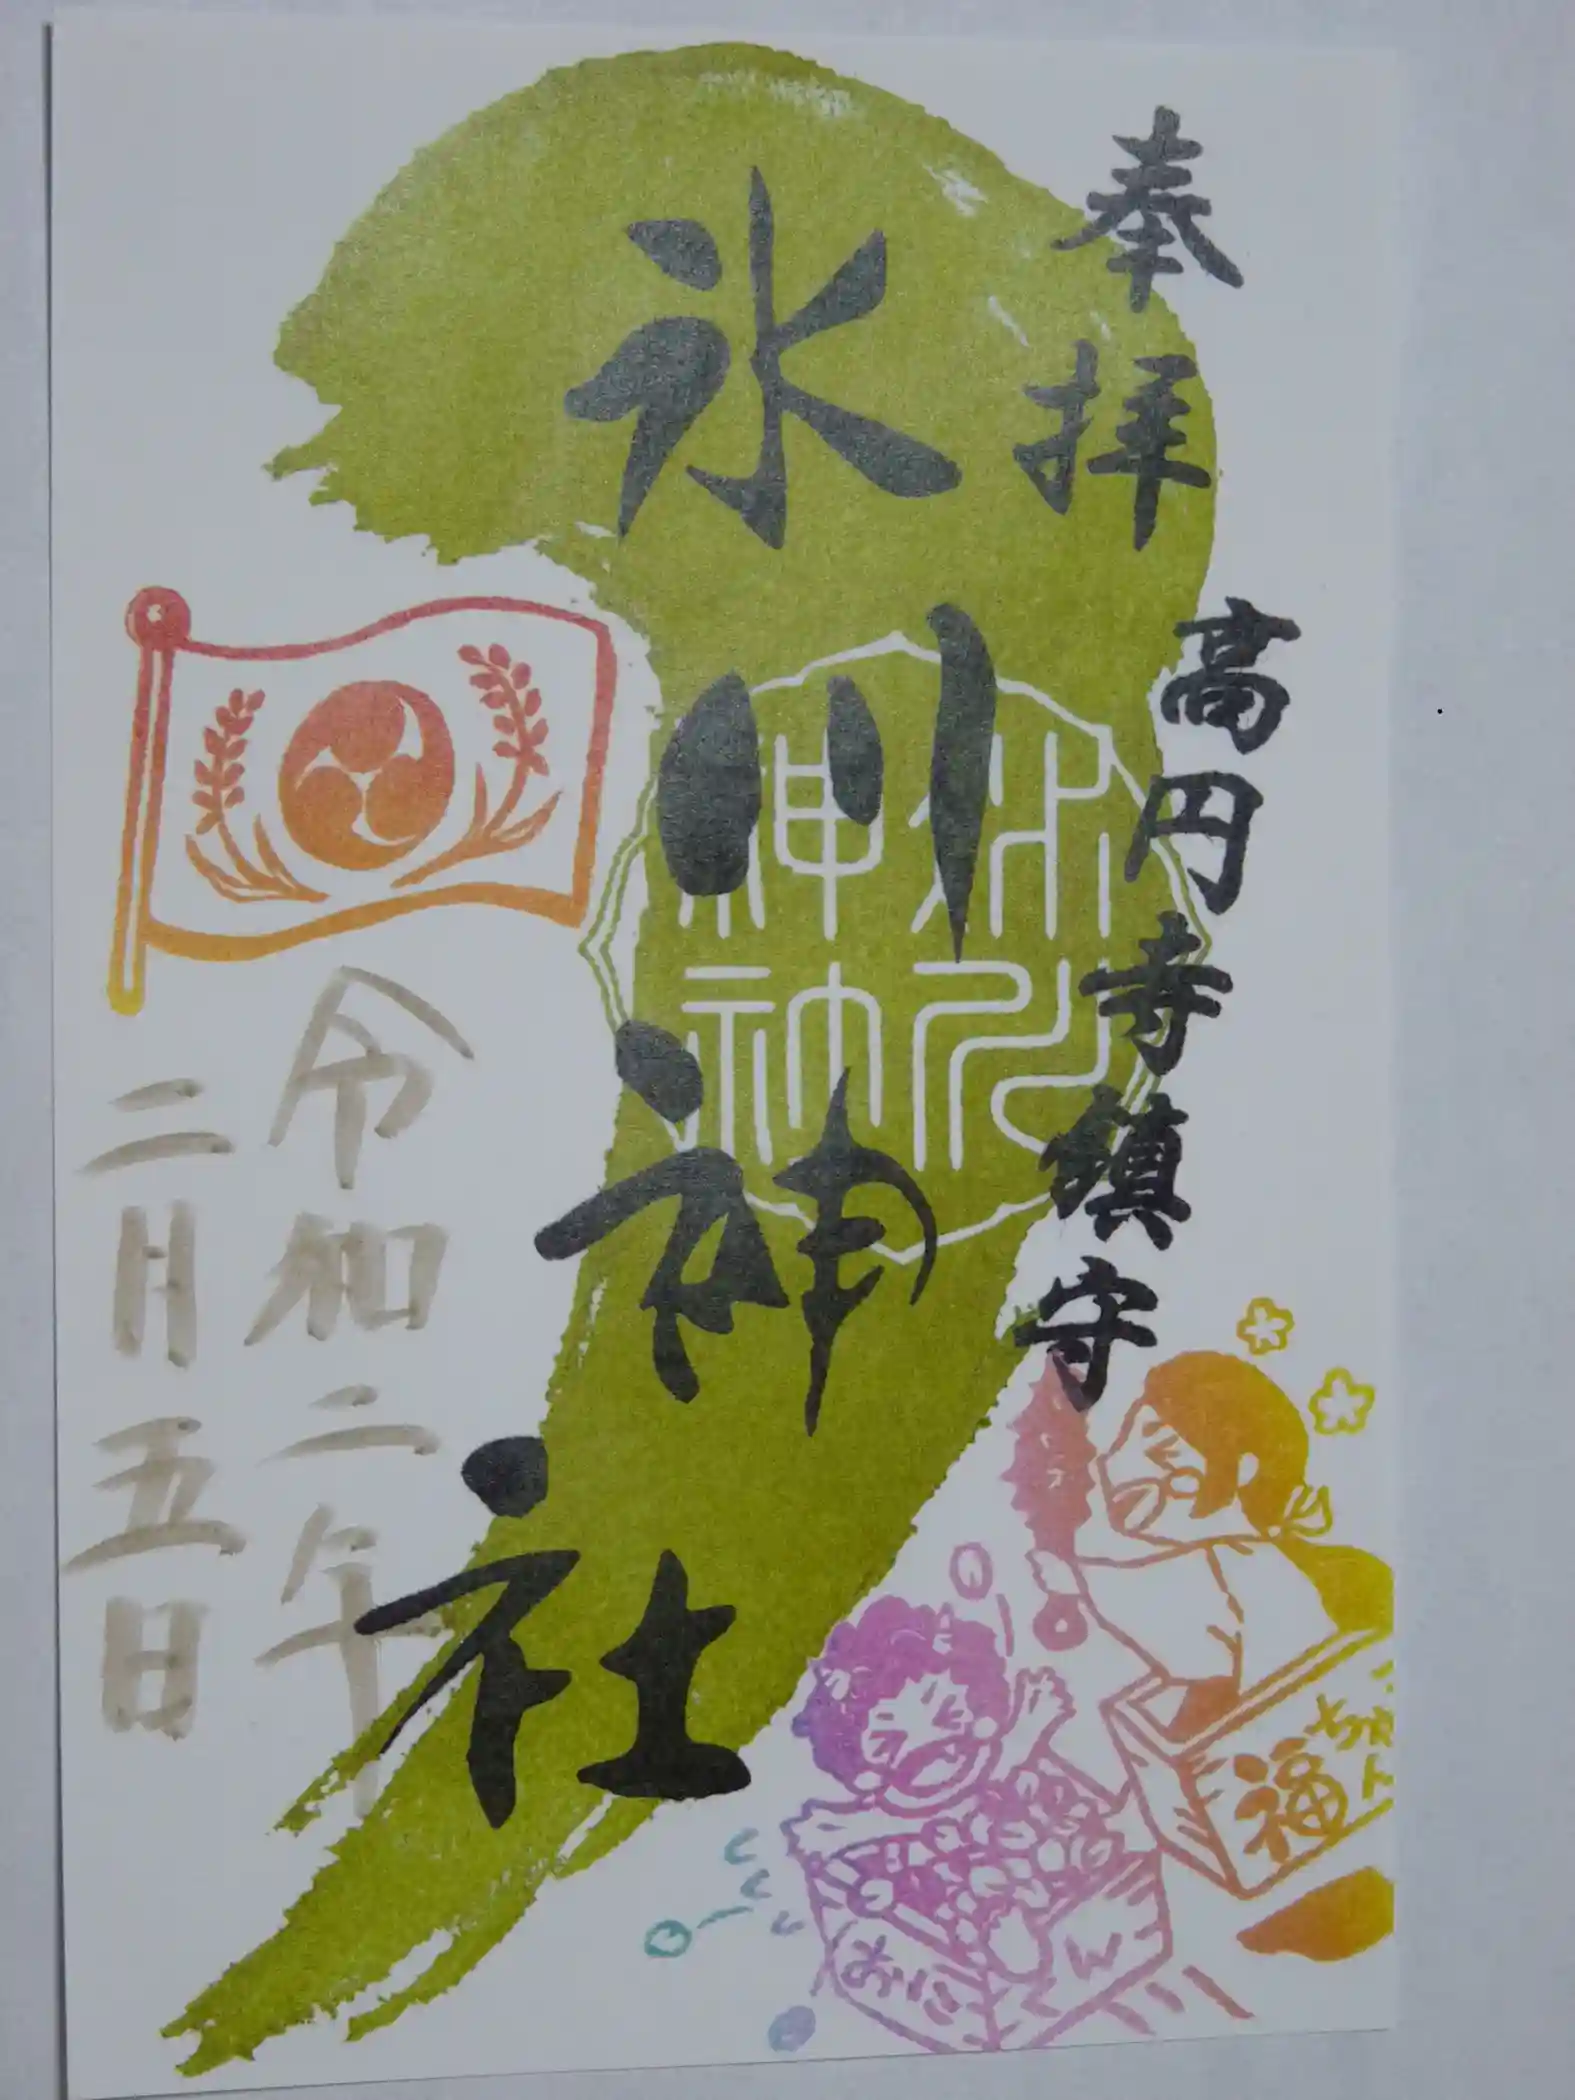 奉拝
高円寺鎮守
氷川神社
氷川神社
神社
令和二年
二月五日
福
おに